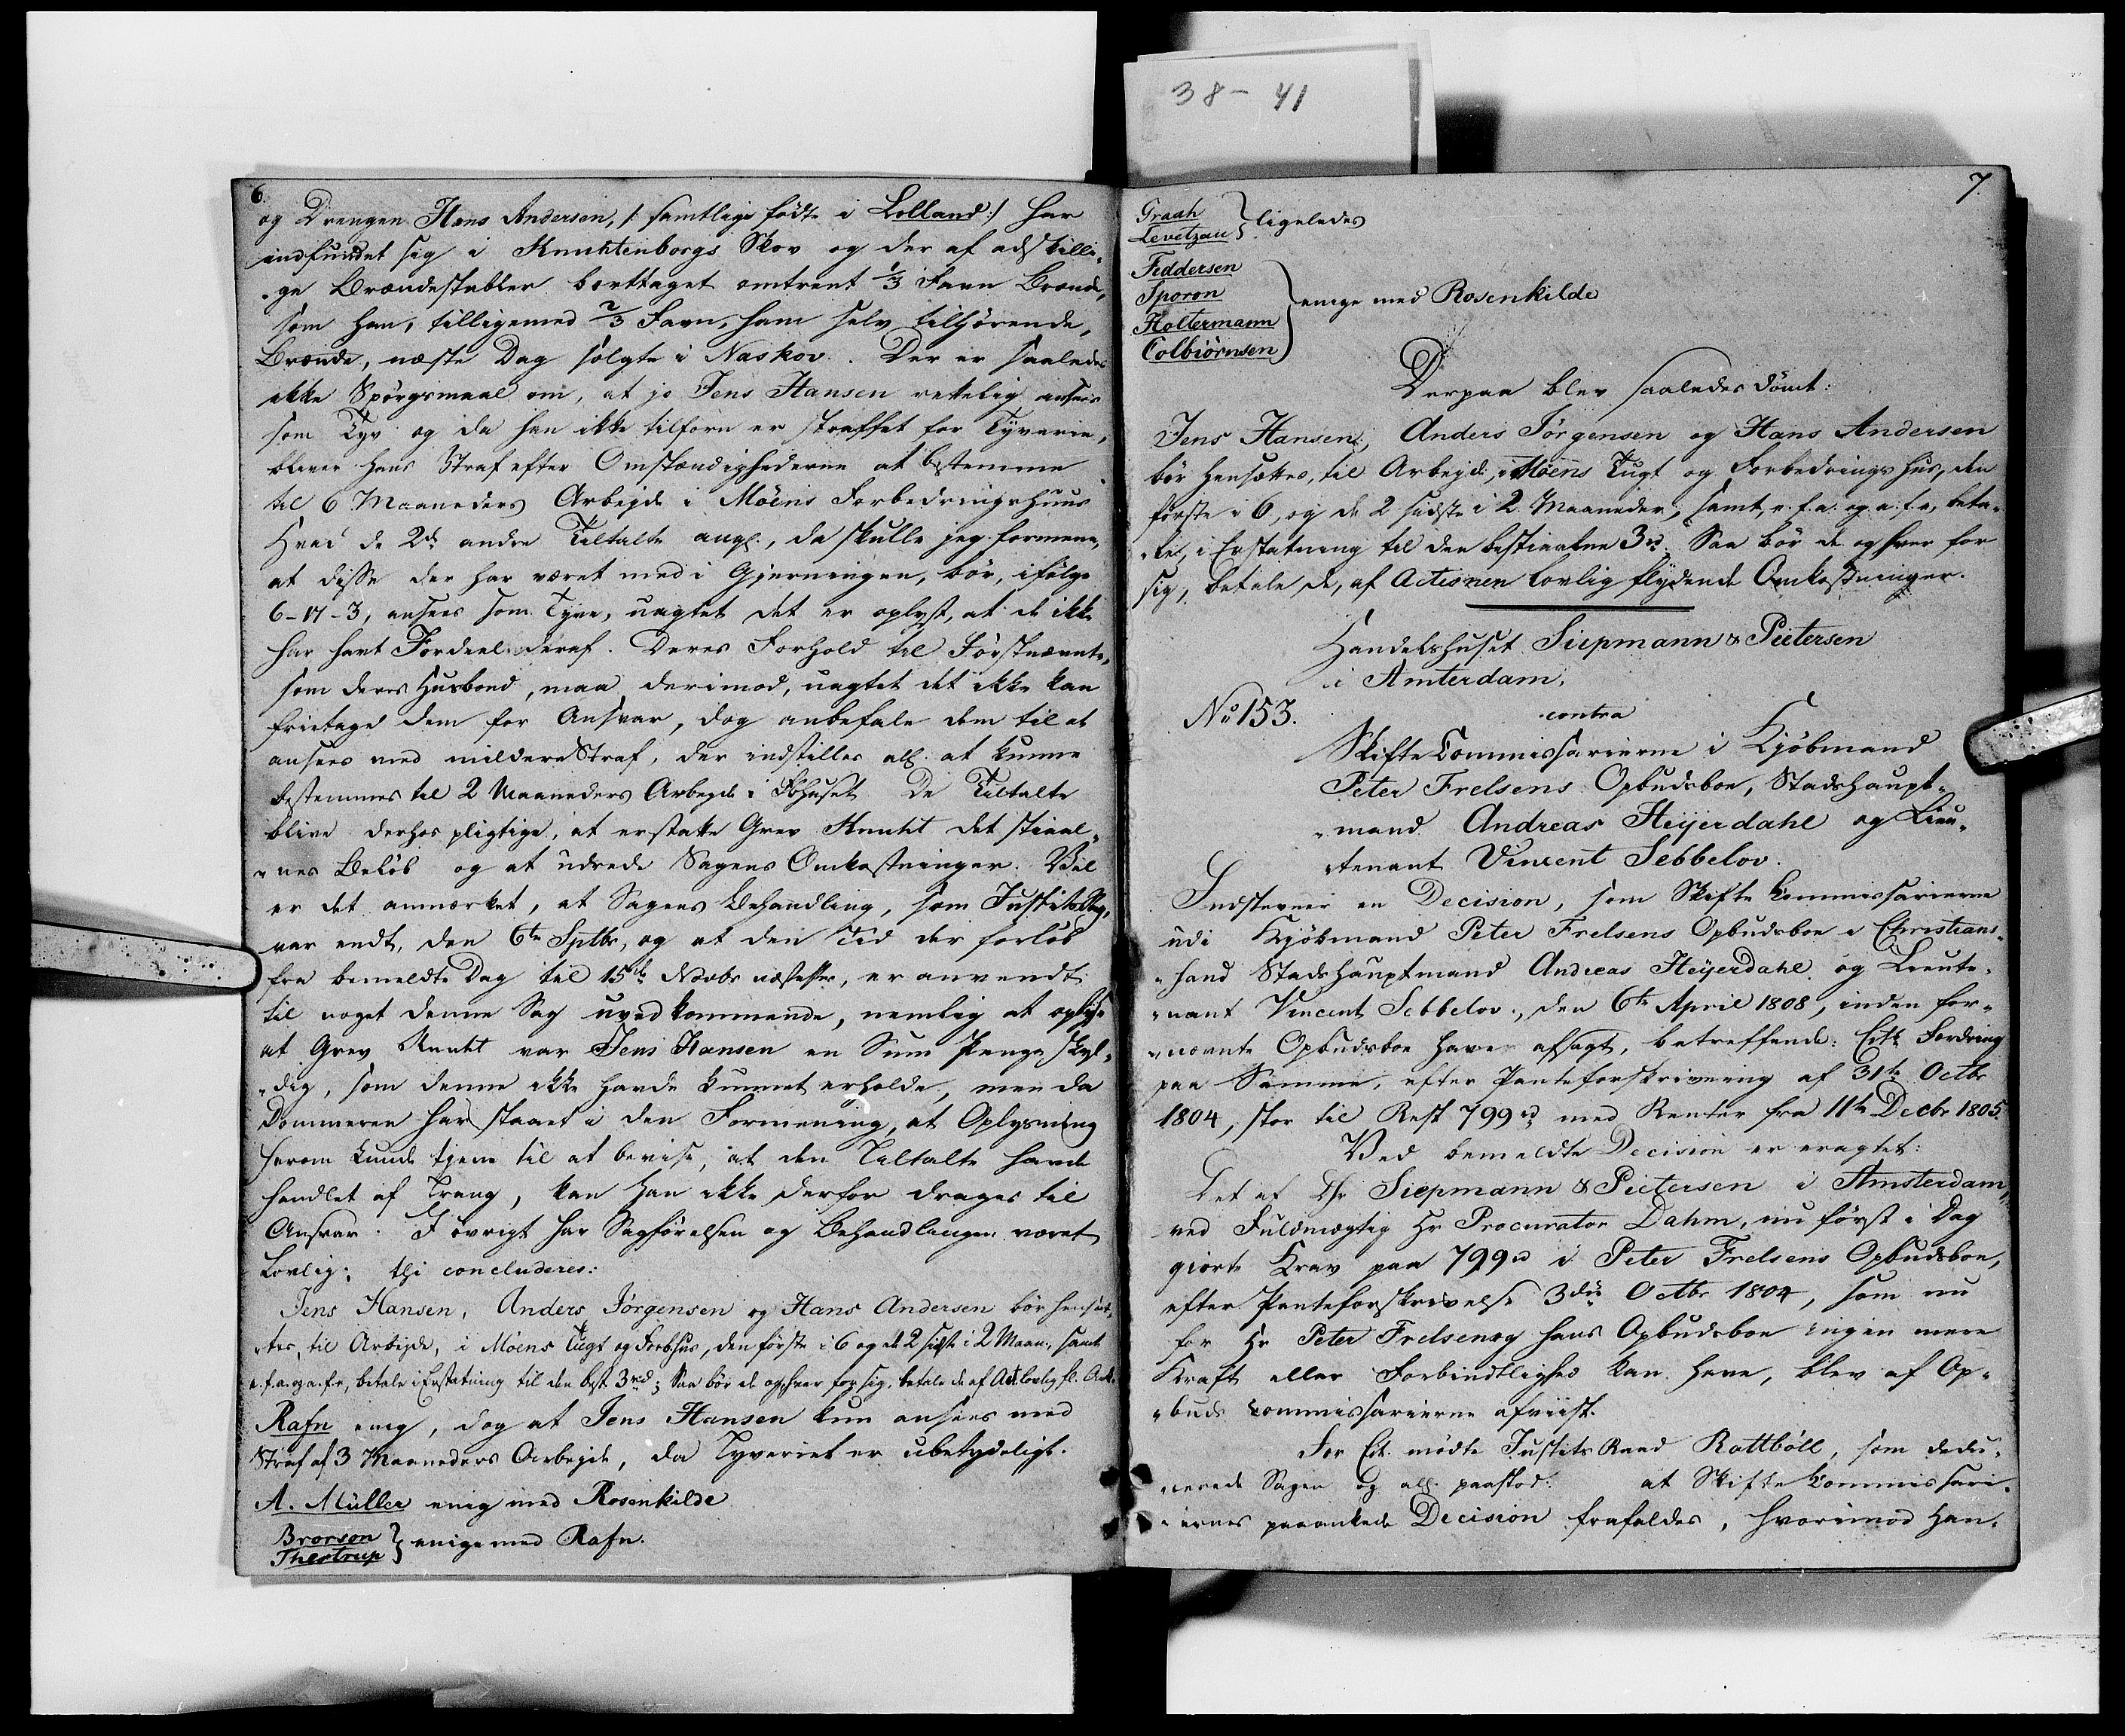 38-41
6.
og Drengen Hans Andersen, /: samtlige fødte i Lolland :/ har
indfundet sig i Knuhtenborgs Skov og der af adskilli-
ge Brændestabler borttaget omtrent 1/3 Favn Brænde,
som han, tilligemed 2/3 Favn, ham selv tilhørende,
Brænde, næste Dag solgte i Naskov. Der er saaledes
ikke Spørgsmaal om, at jo Jens Hansen rettelig ansees
som Tyv og da han ikke tilforn er straffet for Tyverie,
bliver hans Straf efter Omstændighederne at bestemme
til 6 Maaneders Arbejde i Møens Forbedringshuus
Hvad de 2de andre Tiltalte angl., da skulle jeg formene,
at disse der har været med i Gjerningen, bør, ifølge
6-17-3, ansees som Tyve, uagtet det er oplyst, at de ikke
har havt Fordeel deraf. Deres Forhold til Førstnævnte,
som deres Husbond, maa derimod, uagtet det ikke kan
fritage dem for Ansvar, dog anbefale dem til at
ansees med mildere Straf, der indstilles all. at kunne
bestemmes til 2 Maaneders Arbejde i Fbhuset. De Tiltalte
blive derhos pligtige, at erstatte Grev Knuht det stiaal-
nes Beløb og at udrede Sagens Omkostninger. Vel
er det anmærket, at Sagens Behandling, som Justitssag,
var endt, den 6te Septbr, og at den Tid der forløb
fra bemeldte Dag til 15de Novbr næstefter, er anvendt
til noget denne Sag uvedkommende, nemlig at oplyse
at Grev Knuht var Jens Hansen en Sum Penge skyl-
dig, som denne ikke havde kunnet erholde, men da
Dommeren har staaet i den Formening, at Oplysning
herom kunde tjene til at bevise, at den Tiltalte havde
handlet af Trang, kan han ikke derfor drages til
Ansvar. I øvrigt har Sagførelsen og Behandlingen været
Lovlig; thi concluderes:
Jens Hansen, Anders Jörgensen og Hans Andersen bør hensæt-
tes, til Arbejde, i Möens Tugt og Forbhus, den første i 6 og de 2 sidste i 2 Maan., samt
e.f.a. og a.f.e, betale i Erstatning til den best 3rd; Saa bør de og, hver for sig, betale de af Act. lovlig fl. Omk.
Rafn enig, dog at Jens Hansen kun ansees med
Straf af 3 Maaneders Arbejde, da Tyveriet er ubetydeligt.
A. Müller enig med Rosenkilde
Brorson
Thestrup } enige med Rafn.
7.
Graah
Levetzau } ligeledes
Feddersen
Sporon
Holtermann
Colbiörnsen } enige med Rosenkilde
Derpaa blev saaledes dömt:
Jens Hansen, Anders Jörgensen og Hans Andersen
bør hensættes, til Arbejde, i Möens Tugt og Forbedringshus, den
første i 6, og de 2 sidste i 2 Maaneder, samt, e.f.a. og a.f.e, beta-
le, i Erstatning til den bestiaalne 3rd. Saa bør de og hver for
sig, betale de, af Actionen lovlig flydende Omkostninger.
Handelshuset Siepmann & Pietersen
i Amterdam,
No 153.
contra
Skifte Commissarierne i Kjöbmand
Peter Frelsens Opbudsboe, Stadshaupt-
mand Andreas Heijerdahl og Lieu-
tenant Vincent Sebbelov.
Indstevner en Decision, som Skifte Commissarierne
udi Kjöbmand Peter Frelsens Opbudsboe i Christians-
sand Stadshauptmand Andreas Heijerdahl og Lieute-
nant Vincent Sebbelov, den 6te April 1808, inden for-
nævnte Opbudsboe have afsagt, betreffende Citts Fordring
paa Samme, efter Panteforskrivning af 31te Octbr
1804, stor til Rest 799rd med Renter fra 11te Decbr 1805.
Ved bemeldte Decision er eragtet:
Det af Dhr Siepmann & Pietersen i Amsterdam,
ved Fuldmægtig Hr Procurator Dahm, nu først i Dag
giorte Krav paa 799rd i Peter Frelsens Opbudsboe,
efter Panteforskrivelse 3die Octbr 1804, som nu
for Hr Peter Frelsen og hans Opbudsboe ingen mere
Kraft eller Forbindtlighed kan have, blev af Op-
buds Commissarierne afviist.
For Cit. mødte Justits Raad Rottböll, som dedu-
cerede Sagen og all. paastod: at Skifte Commissari-
ernes paaankede Decision frafaldes, hvorimod Han-